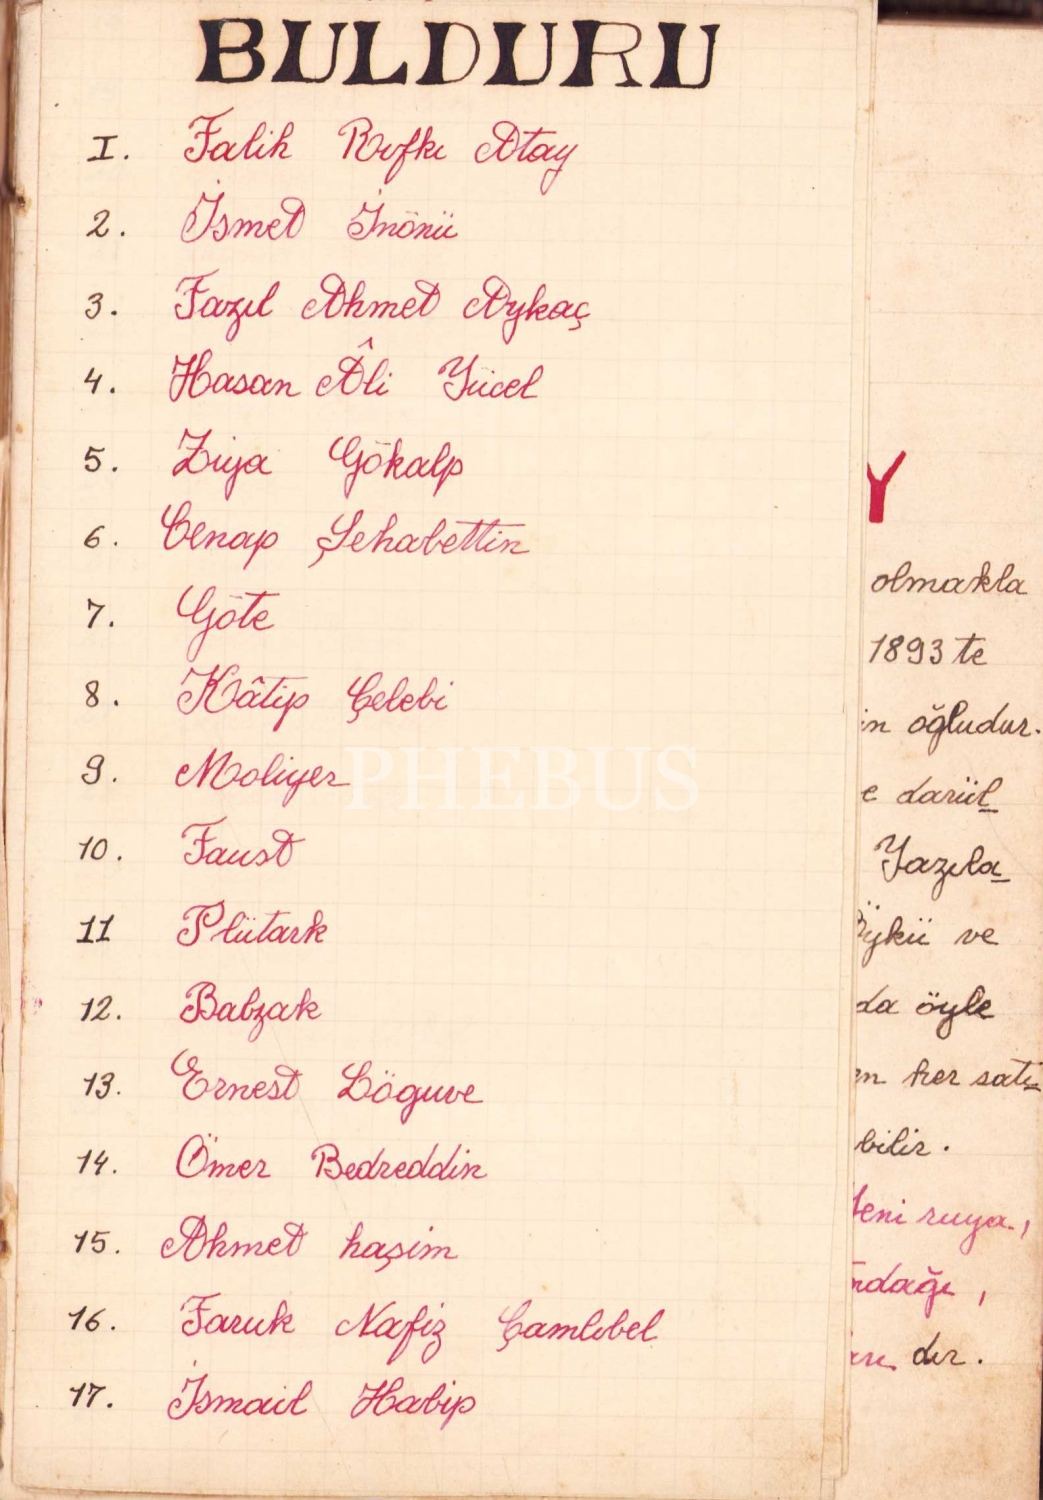 BULDURU
I. Falih Rıfkı Atay
2. İsmet İnönü
3. Fazıl Ahmet Aykaç
4. Hasan Âli Yücel
5. Ziya Gökalp
6. Cenap Şehabettin
7. Göte
8. Kâtip Çelebi
9. Moliyer
10. Faust
11 Plütark
12. Balzak
13. Ernest Löguve
14. Ömer Bedreddin
15. Ahmet haşim
16. Faruk Nafiz Çamlıbel
17. İsmail Habip
PHEBUS
Y
olmakla
1893 te
in oğludur.
e darül
Yazıla
Öykü ve
da öyle
en her satı
bilir.
Yeni ruya,
ndağı,
arı dır.